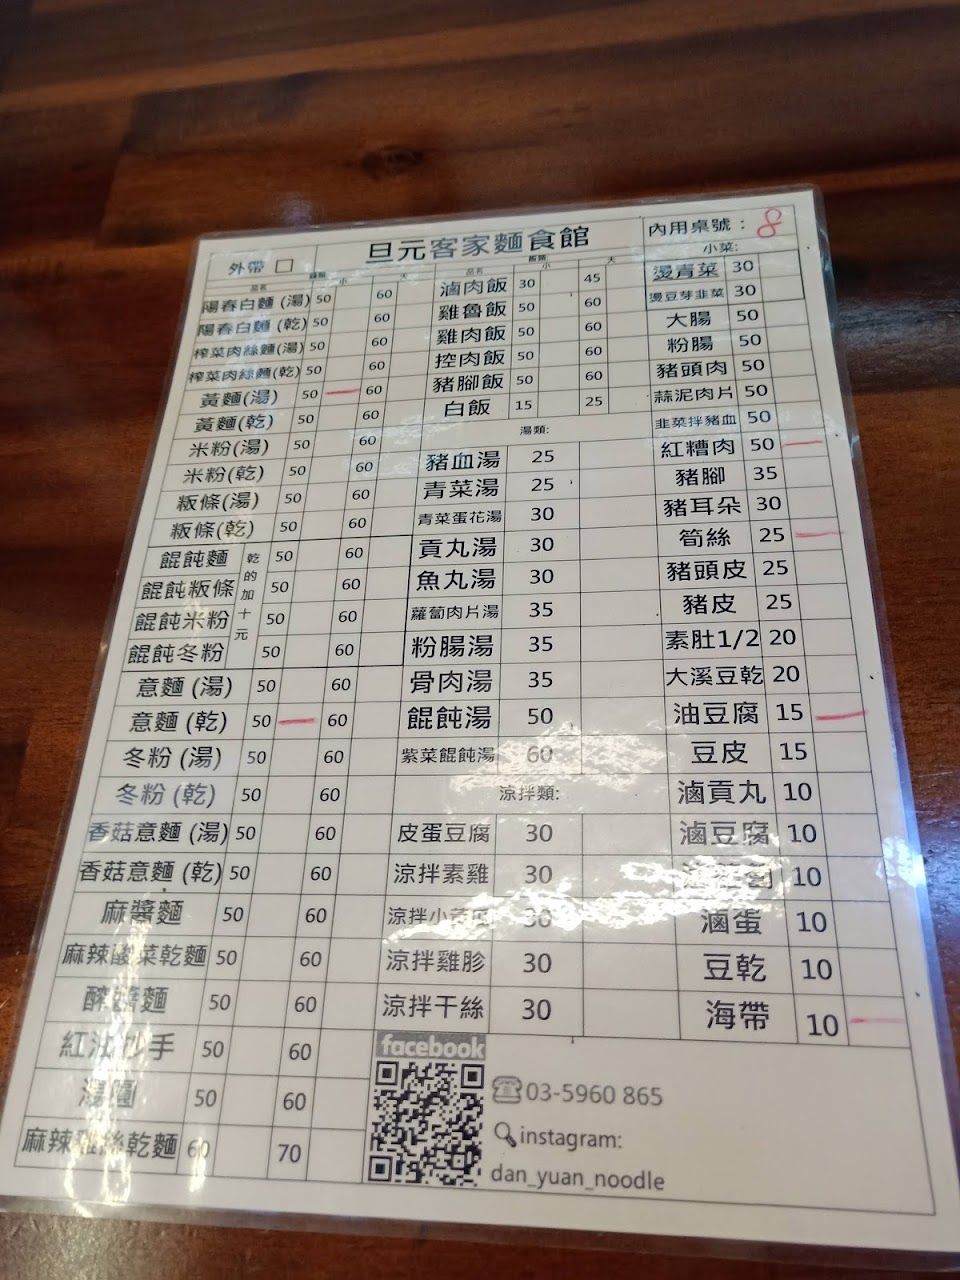 旦元客家麵食館
外帶 □
內用桌號：8
品名 小 大
陽春白麵 (湯) 50 60
陽春白麵 (乾) 50 60
榨菜肉絲麵(湯) 50 60
榨菜肉絲麵(乾) 50 60
黃麵(湯) 50 60
黃麵(乾) 50 60
米粉(湯) 50 60
米粉(乾) 50 60
粄條(湯) 50 60
粄條(乾) 50 60
餛飩麵 50 60
餛飩粄條 50 60
餛飩米粉 50 60
餛飩冬粉 50 60
乾的加十元
意麵 (湯) 50 60
意麵 (乾) 50 60
冬粉 (湯) 50 60
冬粉 (乾) 50 60
香菇意麵 (湯) 50 60
香菇意麵 (乾) 50 60
麻醬麵 50 60
麻辣酸菜乾麵 50 60
醡醬麵 50 60
紅油抄手 50 60
50 60
麻辣雞絲乾麵 60 70
品名 小 大
滷肉飯 30 45
雞魯飯 50 60
雞肉飯 50 60
控肉飯 50 60
豬腳飯 50 60
白飯 15 25
湯類:
豬血湯 25
青菜湯 25
青菜蛋花湯 30
貢丸湯 30
魚丸湯 30
蘿蔔肉片湯 35
粉腸湯 35
骨肉湯 35
餛飩湯 50
紫菜餛飩湯 60
涼拌類:
皮蛋豆腐 30
涼拌素雞 30
涼拌小黃瓜 30
涼拌雞胗 30
涼拌干絲 30
小菜:
燙青菜 30
燙豆芽韭菜 30
大腸 50
粉腸 50
豬頭肉 50
蒜泥肉片 50
韭菜拌豬血 50
紅糟肉 50
豬腳 35
豬耳朵 30
筍絲 25
豬頭皮 25
豬皮 25
素肚1/2 20
大溪豆乾 20
油豆腐 15
豆皮 15
滷貢丸 10
滷豆腐 10
10
滷蛋 10
豆乾 10
海帶 10
facebook
☎03-5960 865
instagram:
dan_yuan_noodle